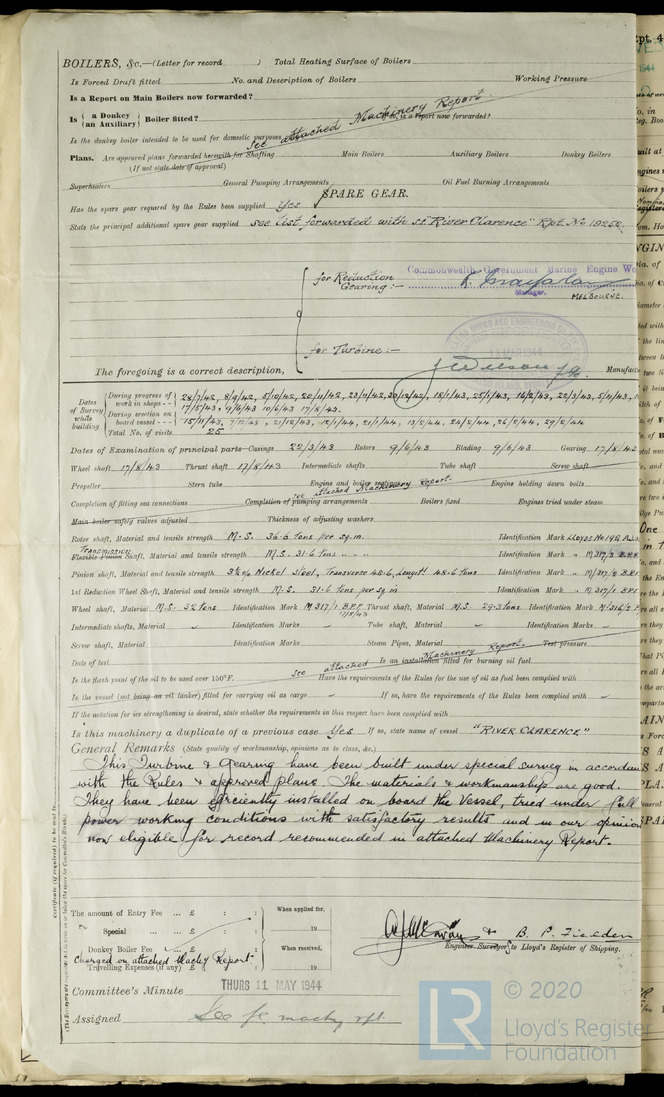 BOILERS, &c.—(Letter for record ) Total Heating Surface of Boilers
Is Forced Draft fitted No. and Description of Boilers Working Pressure
Is a Report on Main Boilers now forwarded?
Is { a Donkey / an Auxiliary } Boiler fitted? is a report now forwarded?
See attached Machinery Report
Is the donkey boiler intended to be used for domestic purposes
Plans. Are approved plans forwarded herewith for Shafting Main Boilers Auxiliary Boilers Donkey Boilers
(If not state date of approval)
Superheaters General Pumping Arrangements Oil Fuel Burning Arrangements
SPARE GEAR.
Has the spare gear required by the Rules been supplied Yes
State the principal additional spare gear supplied see list forwarded with ss "River Clarence" Rpt. No 19252.
for Reduction Gearing:-
Commonwealth Government Marine Engine Wo
Manager.
MELBOURNE.
for Turbine:-
MAR 1944
The foregoing is a correct description,
Manufac
Dates of Survey while building
During progress of work in shops - - 28/7/42, 8/9/42, 5/10/42, 20/11/42, 23/11/42, 30/12/42, 18/1/43, 25/1/43, 16/2/43, 22/3/43, 5/4/43,
17/5/43, 9/6/43 10/6/43 17/8/43.
During erection on board vessel - - - 15/11/43, 7/12/43, 21/12/43, 12/1/44, 21/1/44, 13/2/44, 24/2/44, 26/2/44, 29/2/44
Total No. of visits 25
Dates of Examination of principal parts—Casings 22/3/43 Rotors 9/6/43 Blading 9/6/43 Gearing 17/8/43
Wheel shaft 17/8/43 Thrust shaft 17/8/43 Intermediate shafts Tube shaft Screw shaft
Propeller Stern tube Engine and boiler seatings Engine holding down bolts
see attached Machinery Report.
Completion of fitting sea connections Completion of pumping arrangements Boilers fixed Engines tried under steam
Main boiler safety valves adjusted Thickness of adjusting washers
Rotor shaft, Material and tensile strength M.S. 36.6 tons per sq.in. Identification Mark Lloyds No
Transmission
Flexible Pinion Shaft, Material and tensile strength M.S. 31.6 tons " " " Identification Mark " M317/3 B.P.F
Pinion shaft, Material and tensile strength 3½% Nickel steel, Transverse 48.6, Longit! 48.6 tons Identification Mark " M317/2 B.P.F
1st Reduction Wheel Shaft, Material and tensile strength M.S. 31.6 tons per sq in Identification Mark " M317/1 B.P.F
Wheel shaft, Material M.S. 32 tons Identification Mark M317/1 B.P.F Thrust shaft, Material M.S. 29.3 tons Identification Mark M316/2
17/8/43
Intermediate shafts, Material Identification Marks Tube shaft, Material Identification Marks
Screw shaft, Material Identification Marks Steam Pipes, Material Test pressure
Date of test Is an installation fitted for burning oil fuel
see attached Machinery Report.
Is the flash point of the oil to be used over 150°F. Have the requirements of the Rules for the use of oil as fuel been complied with
Is the vessel (not being an oil tanker) fitted for carrying oil as cargo If so, have the requirements of the Rules been complied with
If the notation for ice strengthening is desired, state whether the requirements in this respect have been complied with
Is this machinery a duplicate of a previous case Yes If so, state name of vessel "RIVER CLARENCE"
General Remarks (State quality of workmanship, opinions as to class, &c.)
This Turbine & Gearing have been built under special survey in accordan
with the Rules & approved plans. The materials & workmanship are good.
They have been efficiently installed on board the Vessel, tried under full
power working conditions with satisfactory results and in our opinion
now eligible for record recommended in attached Machinery Report.
The amount of Entry Fee ... £ : : When applied for,
Special ... £ : : 19
Donkey Boiler Fee ... £ : : When received,
Charged on attached Machy Report
Travelling Expenses (if any) £ : : 19
& B. P. Fielden
Engineer Surveyor to Lloyd's Register of Shipping.
Committee's Minute THURS 11 MAY 1944
Assigned
LR © 2020
Lloyd's Register
Foundation